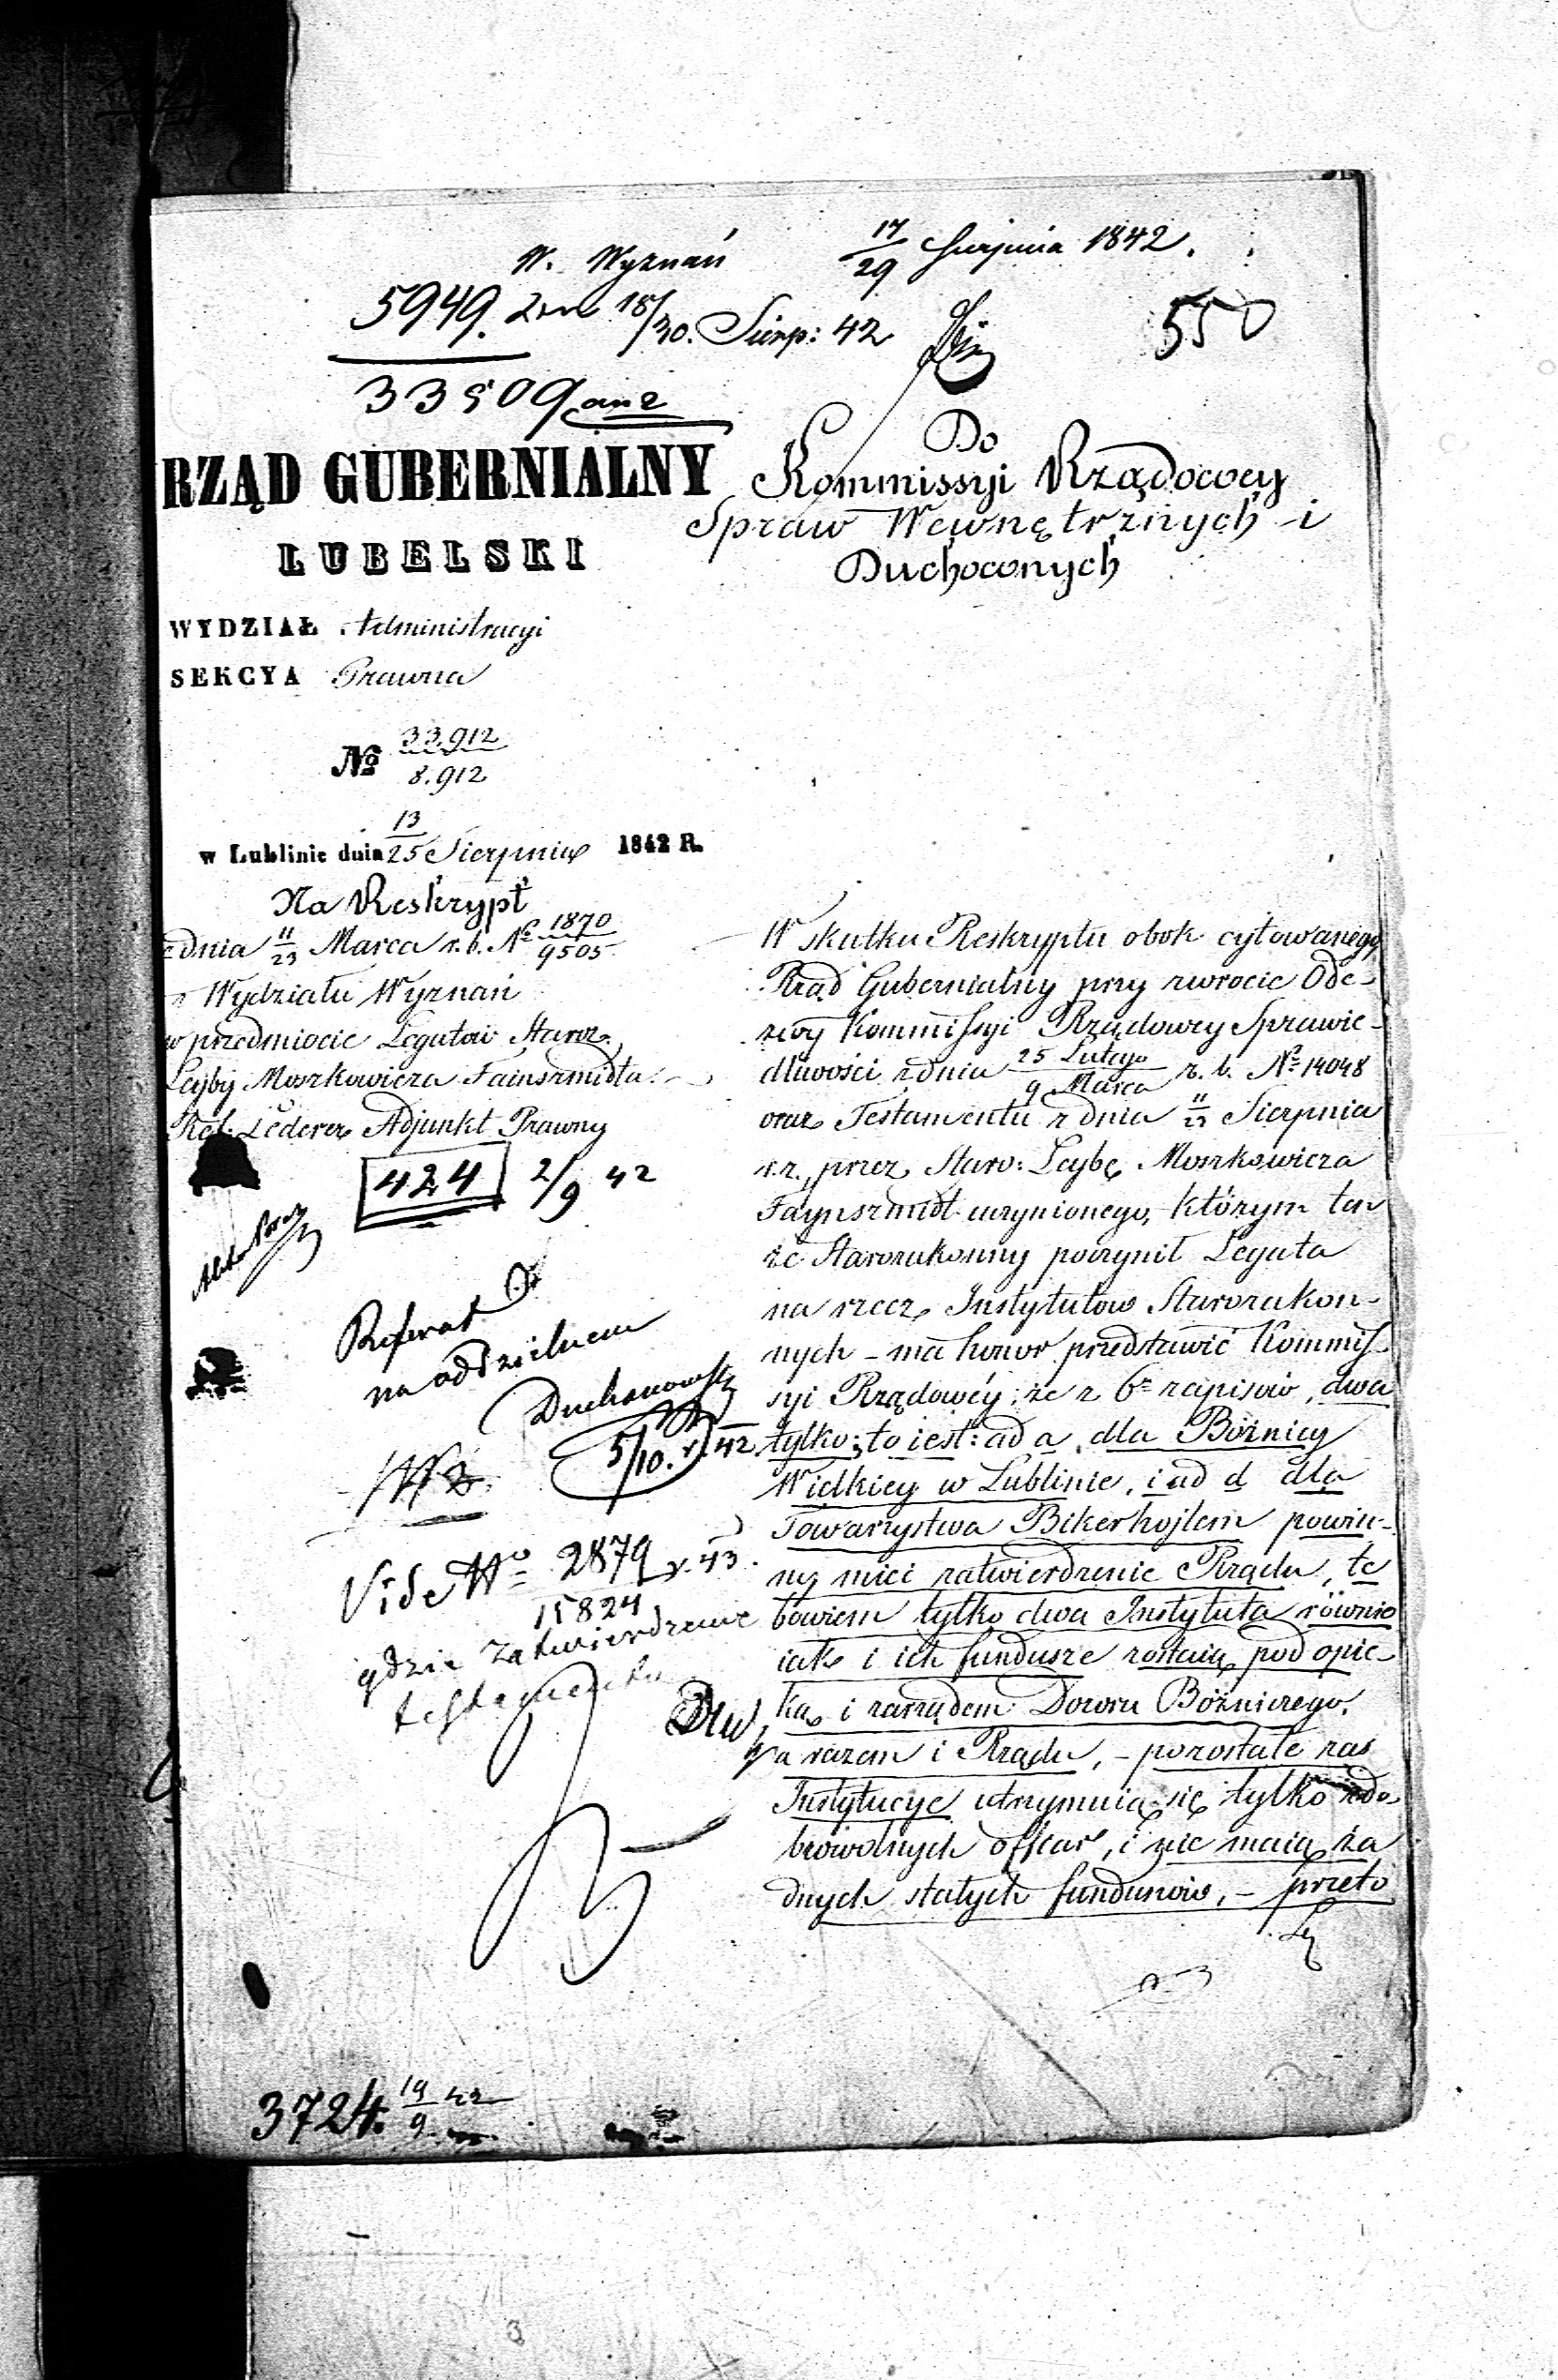 W. Wyznań 17/29 Sierpnia 1842.
5949. 18/30. Sierp: 42
550
33509
RZĄD GUBERNIALNY
LUBELSKI
WYDZIAŁ Administracyi
SEKCYA Prawna
№ 33.912/8.912
w Lublinie dnia 13/25 Sierpnia 1842 R.
Na Reskrypt
z dnia 11/23 Marca r. b. № 1870/9505
z Wydziału Wyznań
w przedmiocie Legatow Staroz.
Leyby Moszkowicza Fainszmidta.
Ref. Lederer Adjunkt Prawny
424 2/9 42
Referat
na oddzielnem
Duchanowski
5/10. r. 42
Vide № 2879/15824 r. 43.
gdzie zatwierdzenie
testamentu
3724. 19/9 42
Do
Kommissyi Rządowey
Spraw Wewnętrznych i
Duchownych
W skutku Reskryptu obok cytowanego
Rząd Gubernialny przy zwrocie Ode-
zwy Kommissyi Rządowey Sprawie-
dliwości z dnia 25 Lutego/9 Marca r. b. № 14048
oraz Testamentu z dnia 11/23 Sierpnia
przez Staro: Leybę Moszkowicza
Faynszmidt uczynionego, którym ten
że Starozakonny poczynił Legata
na rzecz Instytutow Starozakon-
nych - ma honor przedstawić Kommis-
syi Rządowéy; że z 6 zapisów, dwa
tylko; to iest: ad a dla Bóżnicy
Wielkiey w Lublinie, i ad d dla
Towarzystwa Bikerhojlem powin-
ny mieć zatwierdzenie Rządu, te
bowiem tylko dwa Instytuta równie
iak i ich fundusze zostaią pod opie-
ką i zarządem Dozoru Bóżniczego.
a razem i Rządu, - pozostałe zaś
Instytucye utrzymuią się tylko z do-
browolnych offiar, i nie maią ża
dnych stałych funduszów, - przeto